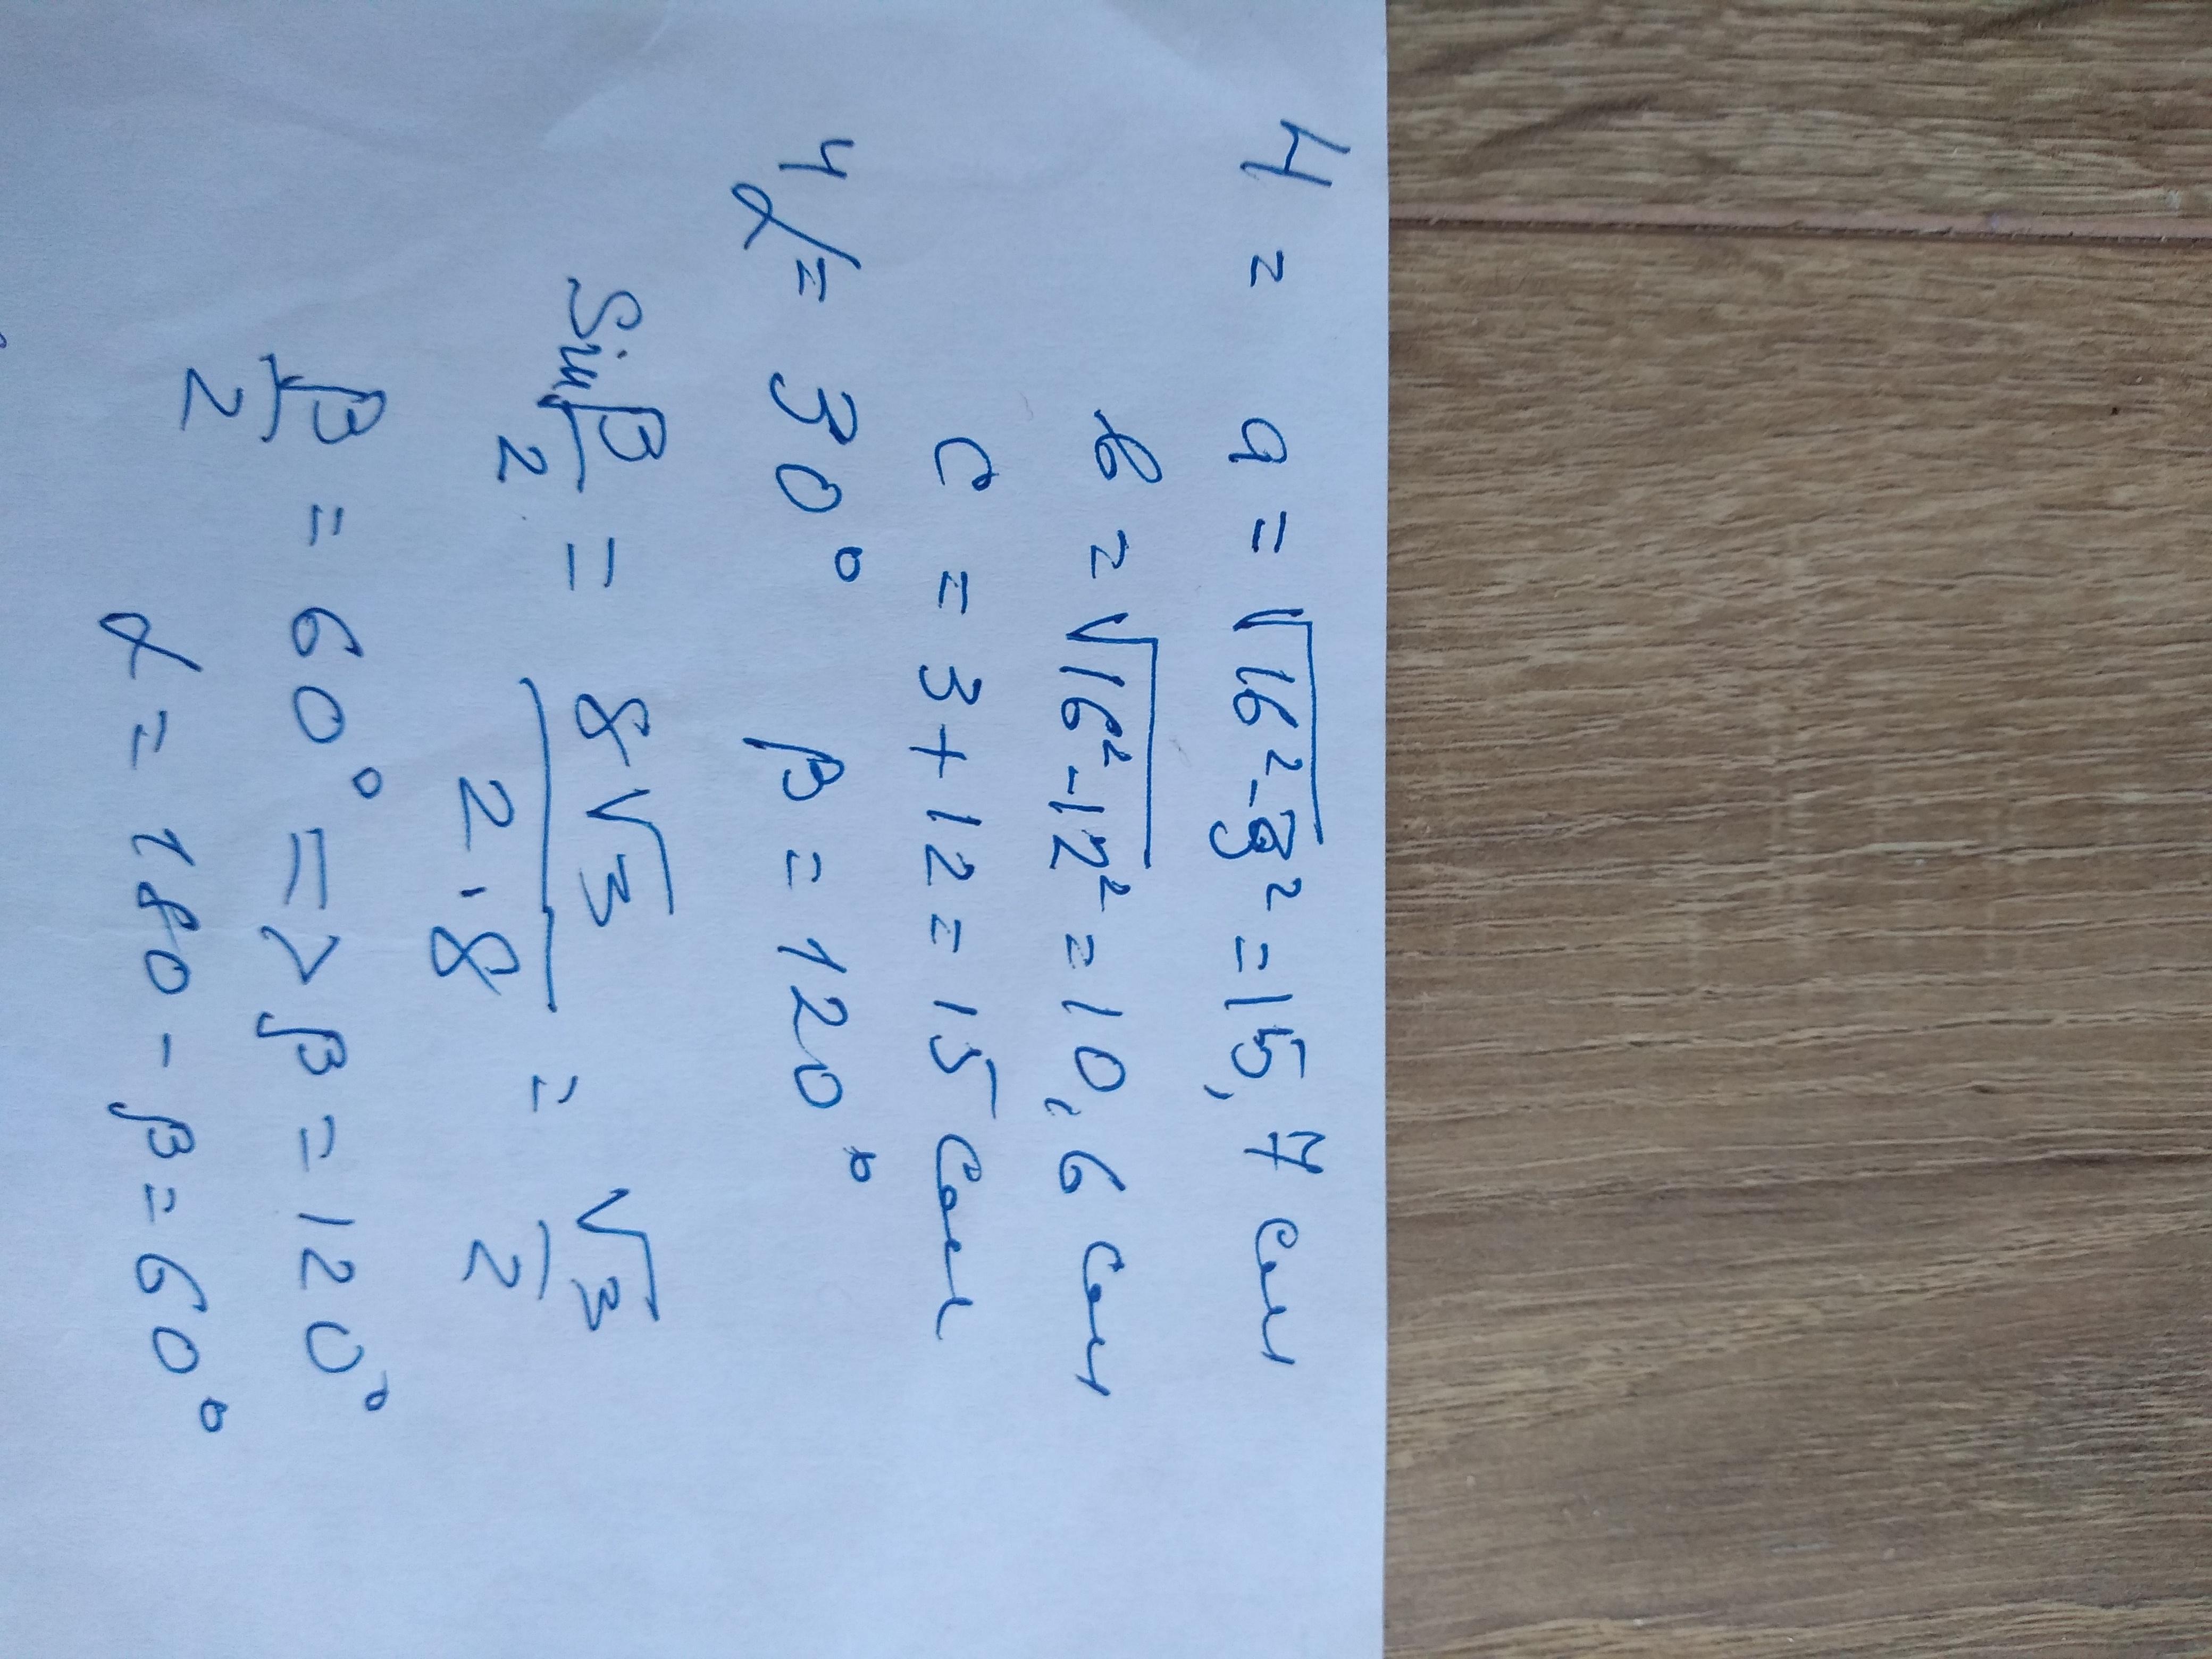 H =
a = √16²-3² = 15,7 см
b = √16²-12² = 10,6 см
c = 3+12 = 15 см
4 α = 30° β = 120°
Sin β/2 = 8√3/2·8 = √3/2
β/2 = 60° => β = 120°
α = 180 - β = 60°